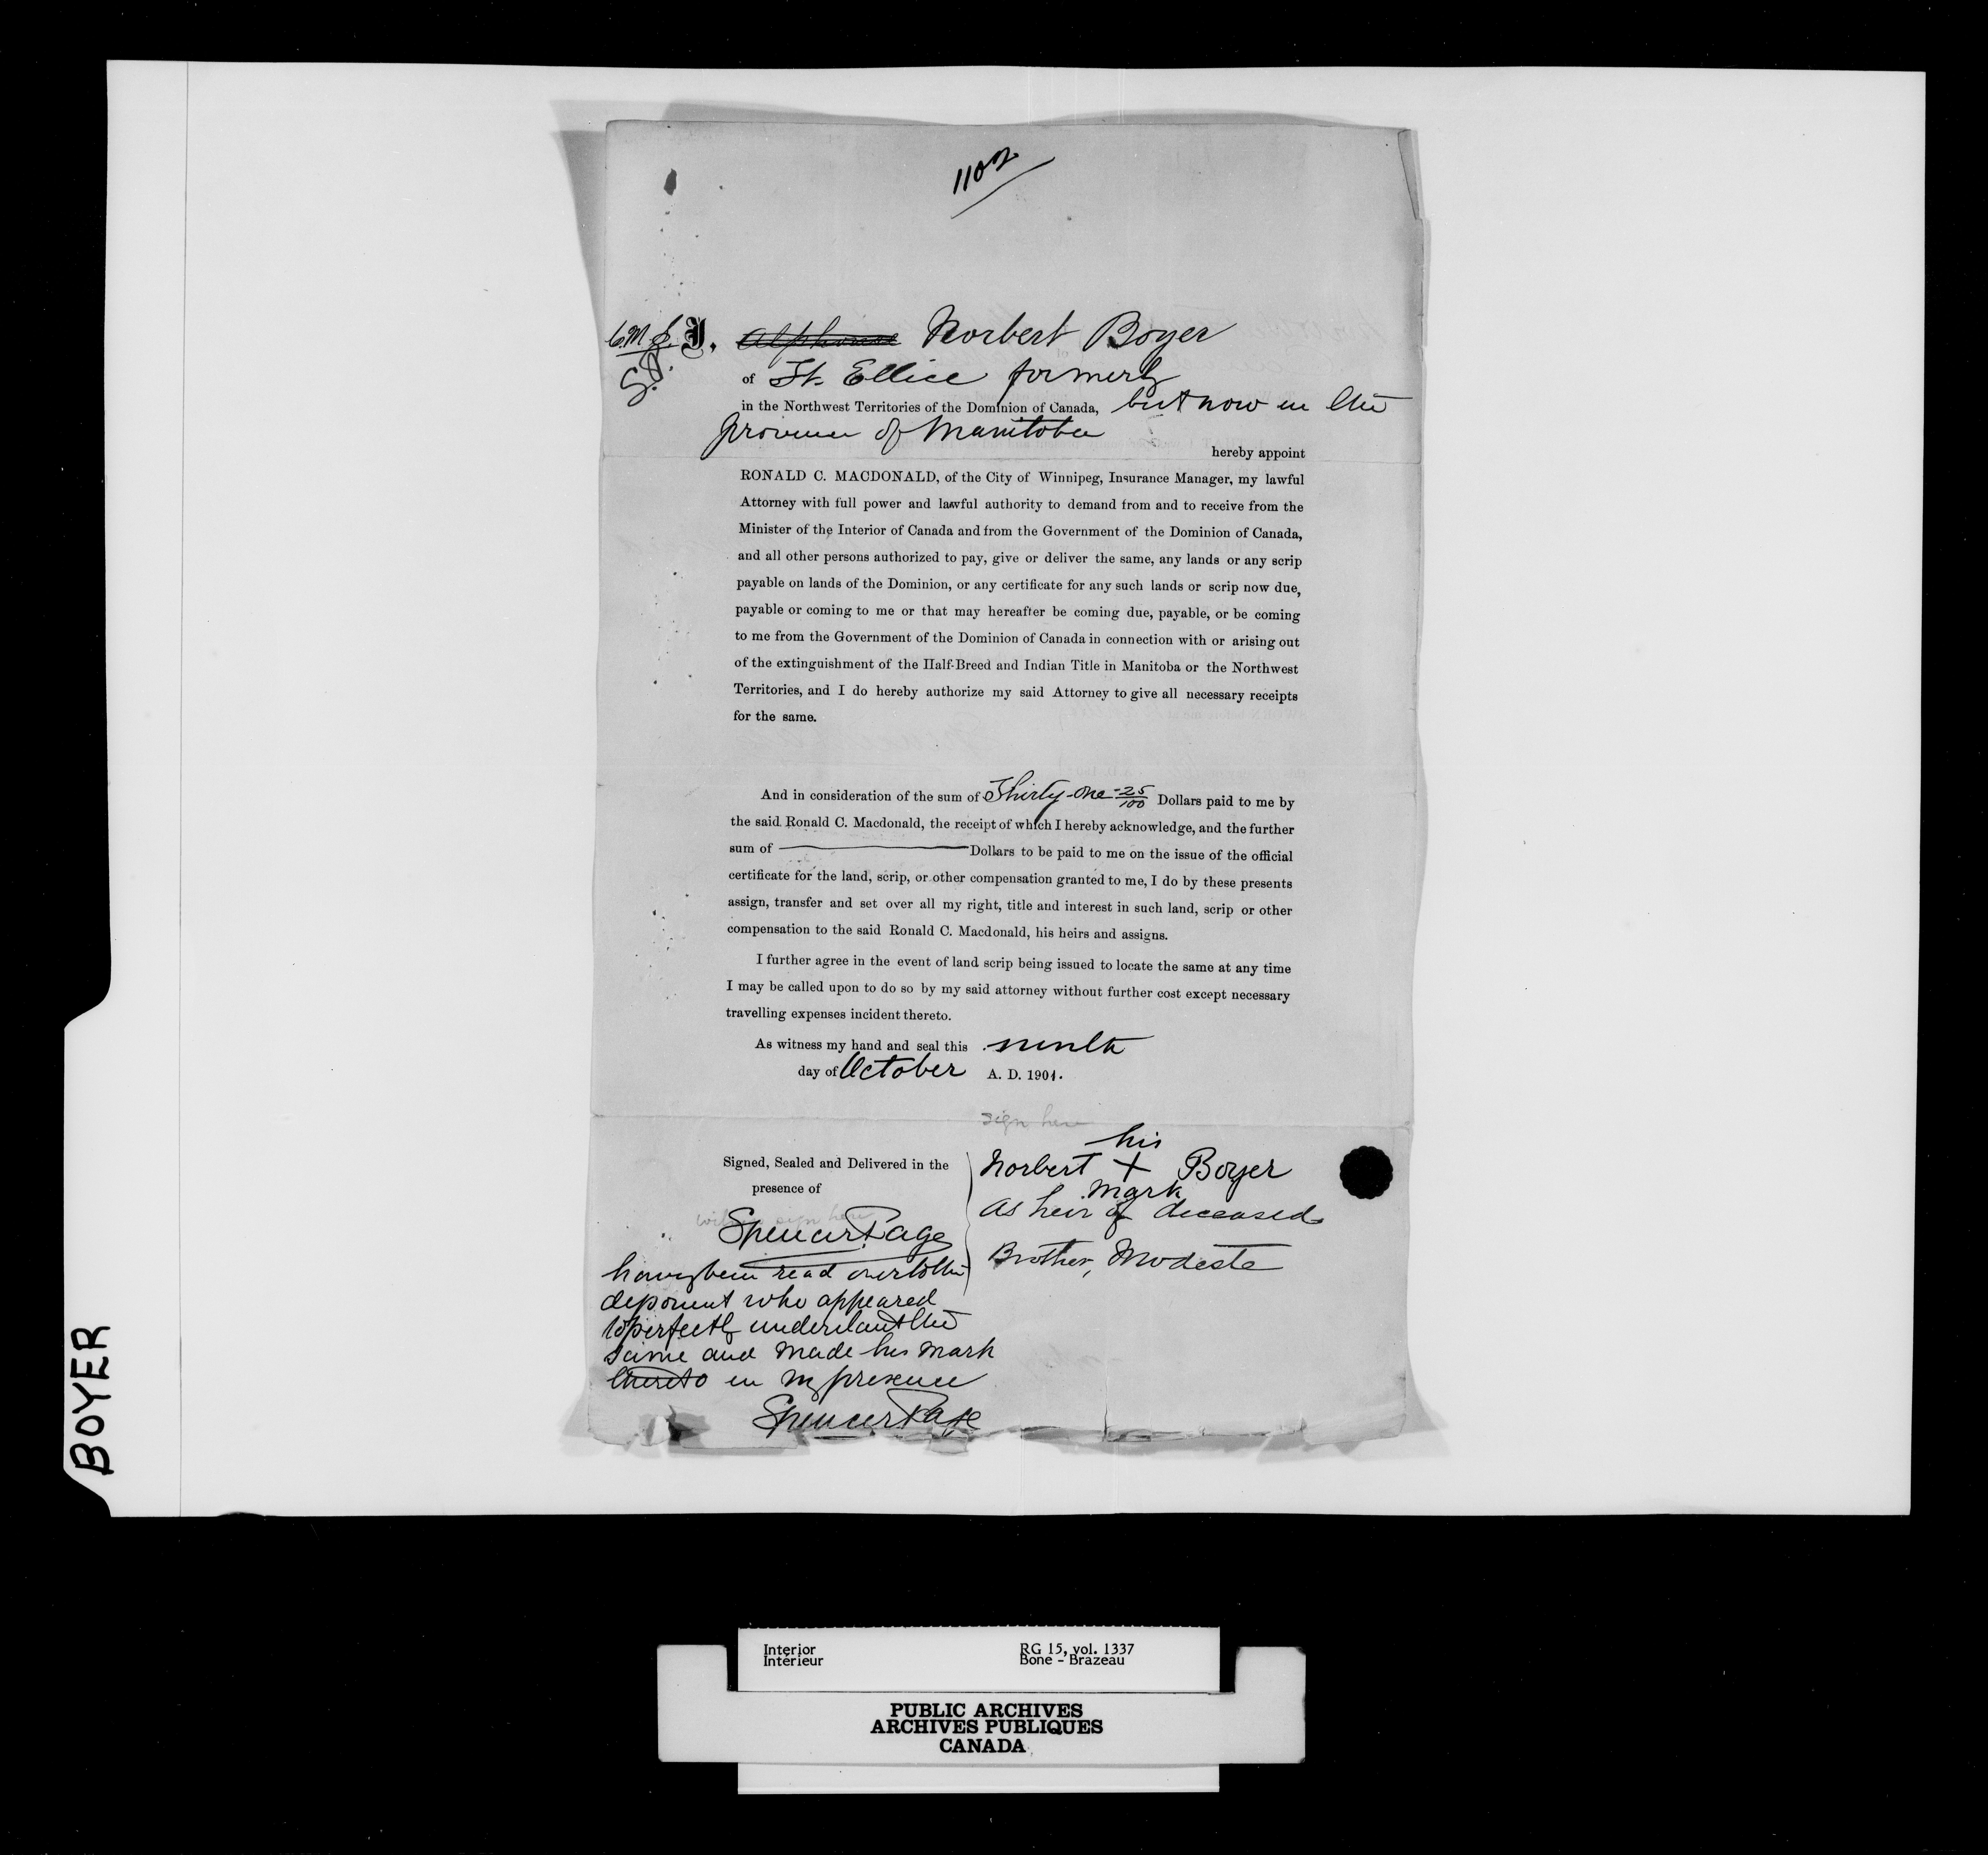 1102
I, Alphonse Norbert Boyer
of Ft. Ellice formerly
in the Northwest Territories of the Dominion of Canada, but now in the
province of Manitoba
hereby appoint
RONALD C. MACDONALD, of the City of Winnipeg, Insurance Manager, my lawful
Attorney with full power and lawful authority to demand from and to receive from the
Minister of the Interior of Canada and from the Government of the Dominion of Canada,
and all other persons authorized to pay, give or deliver the same, any lands or any scrip
payable on lands of the Dominion, or any certificate for any such lands or scrip now due,
payable or coming to me or that may hereafter be coming due, payable, or be coming
to me from the Government of the Dominion of Canada in connection with or arising out
of the extinguishment of the Half-Breed and Indian Title in Manitoba or the Northwest
Territories, and I do hereby authorize my said Attorney to give all necessary receipts
for the same.
And in consideration of the sum of Thirty-one 25/100 Dollars paid to me by
the said Ronald C. Macdonald, the receipt of which I hereby acknowledge, and the further
sum of Dollars to be paid to me on the issue of the official
certificate for the land, scrip, or other compensation granted to me, I do by these presents
assign, transfer and set over all my right, title and interest in such land, scrip or other
compensation to the said Ronald C. Macdonald, his heirs and assigns.
I further agree in the event of land scrip being issued to locate the same at any time
I may be called upon to do so by my said attorney without further cost except necessary
travelling expenses incident thereto.
As witness my hand and seal this ninth
day of October A. D. 1901.
sign here
his
Signed, Sealed and Delivered in the Norbert X Boyer
presence of mark
witness sign here as heir of deceased
Spencer Page Brother, Modeste
having been read over to the
deponent who appeared
to perfectly understand the
same and made his mark
thereto in my presence
Spencer Page
BOYER
Interior RG 15, vol. 1337
Intérieur Bone - Brazeau
PUBLIC ARCHIVES
ARCHIVES PUBLIQUES
CANADA